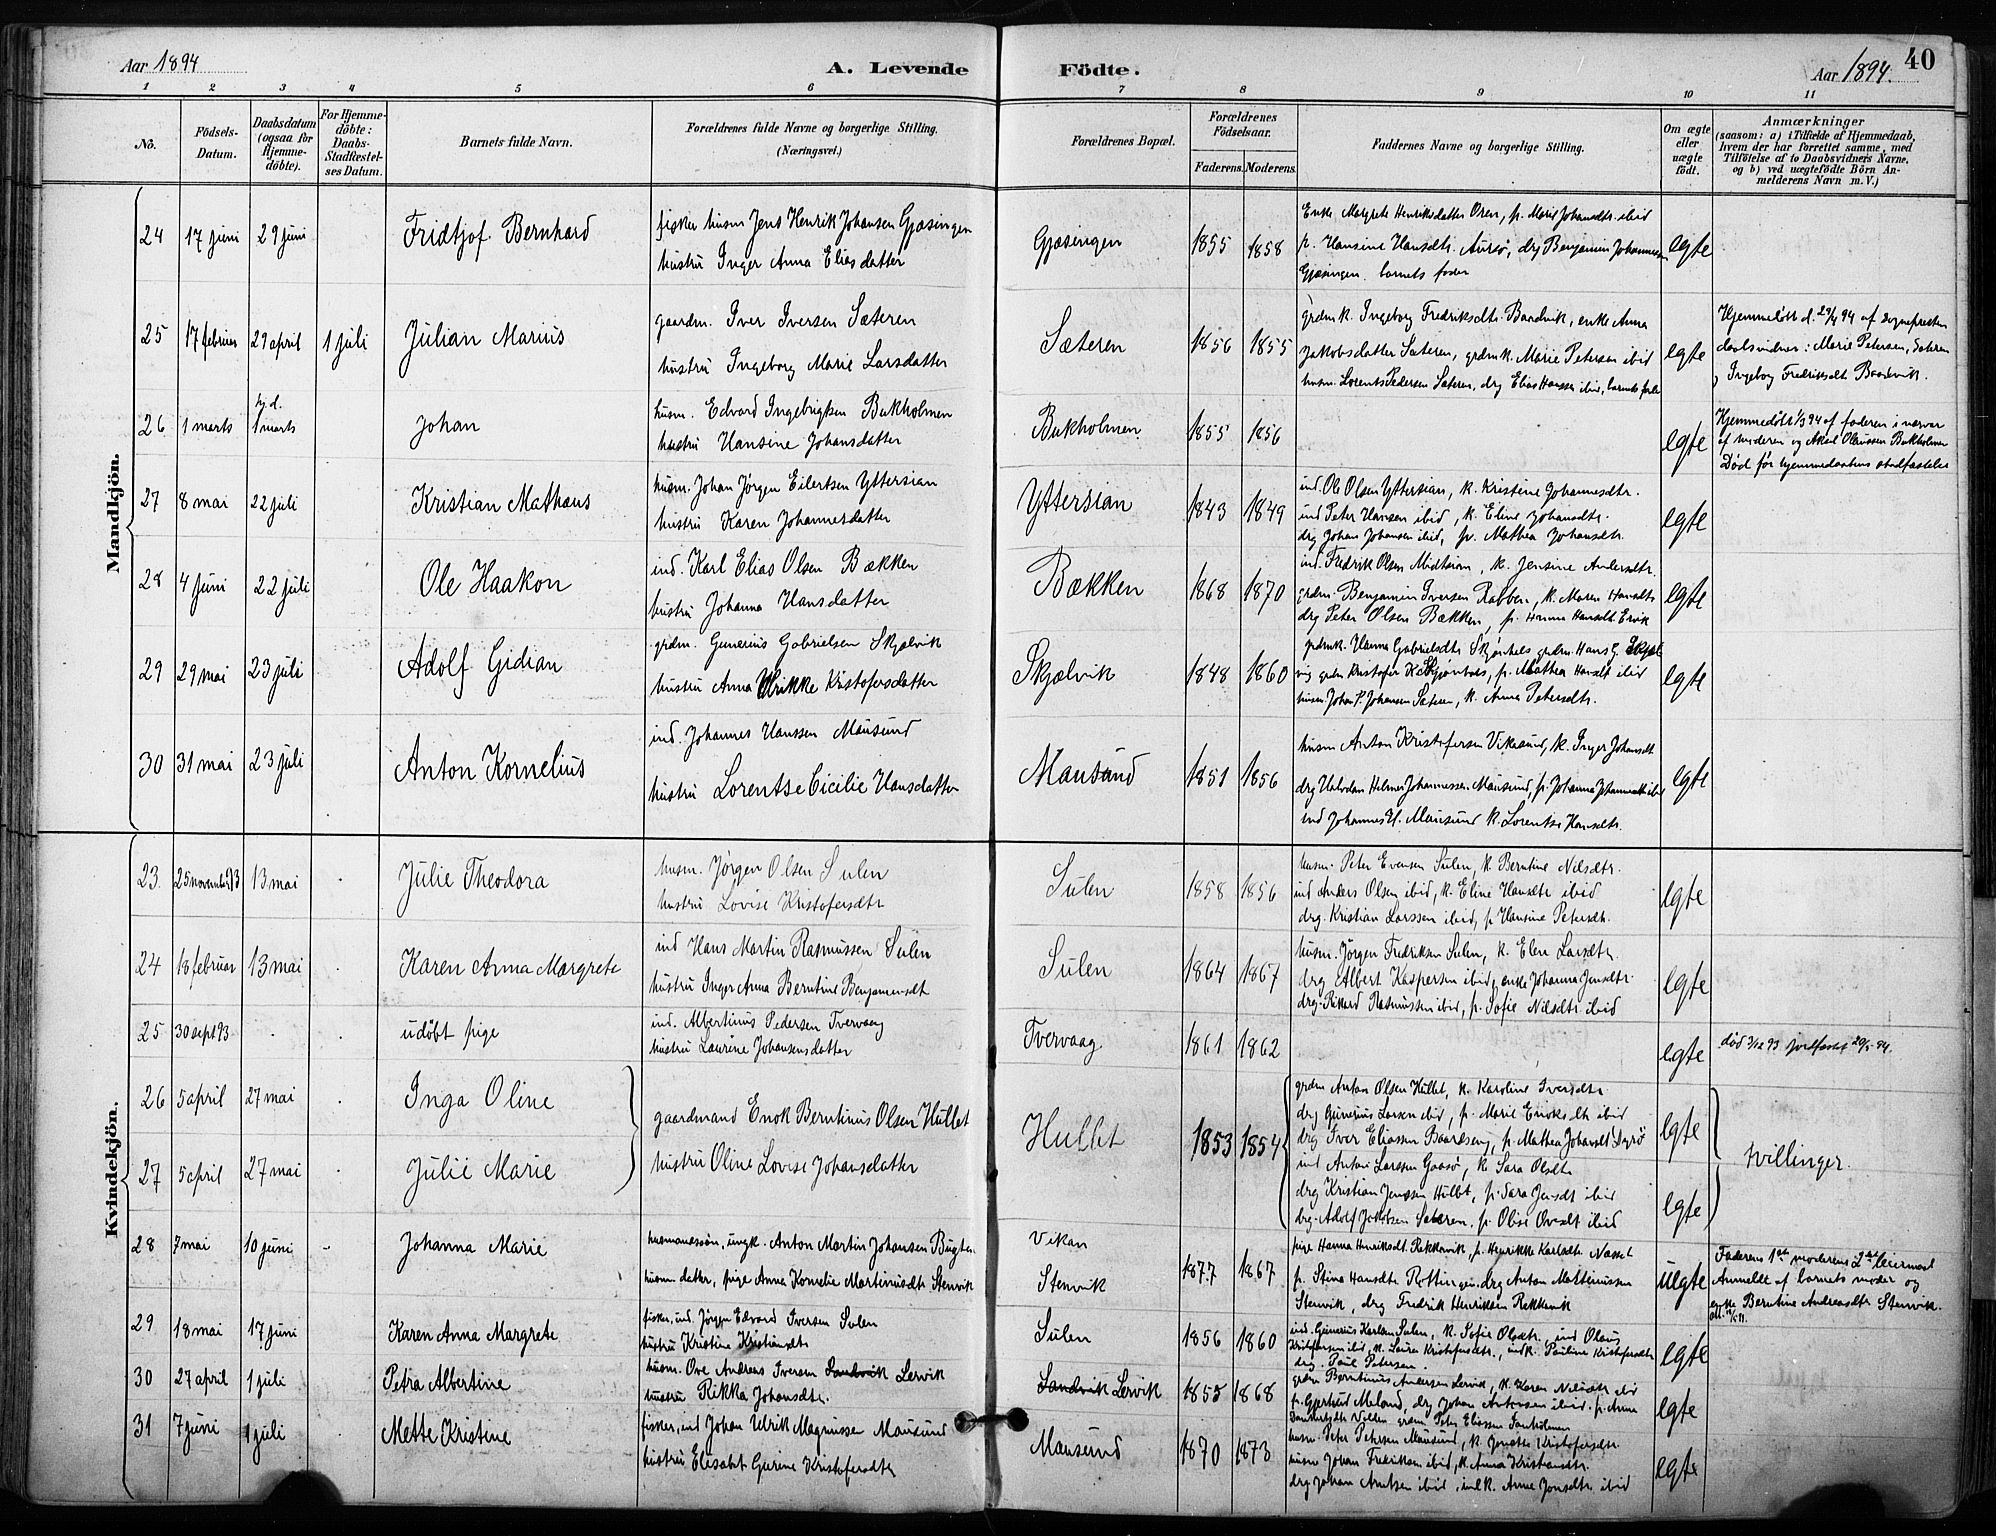 Aar 1894
A. Levende
Födte.
Aar 1894.
40
1 2 3 4 5 6 7 8 9 10 11
No.
Födsels-
Datum.
Daabsdatum
(ogsaa for
Hjemme-
döbte).
For Hjemme-
döbte:
Daabs-
Stadfæstel-
ses Datum.
Barnets fulde Navn.
Forældrenes fulde Navne og borgerlige Stilling.
(Næringsvei.)
Forældrenes Bopæl.
Forældrenes
Födselsaar.
Faderens. Moderens.
Faddernes Navne og borgerlige Stilling.
Om ægte
eller
uægte
födt.
Anmærkninger
(saasom: a) i Tilfælde af Hjemmedaab,
hvem der har forrettet samme, med
Tilföielse af to Daabsvidners Navne,
og b) ved uægtefödte Börn An-
melderens Navn m. V.)
Mandkjön.
24 17 juni 29 juni Fridtjof Bernhard
fisker husm Jens Henrik Johansen Gjæsingen
hustru Inger Anna Eliasdatter
Gjæsingen 1855 1858
Enke Margrete Henriksdatter Oren, p. Marie Johansdtr ibid
p. Hansine Hansdtr. Aursø, drg Benjamin Johannessen
Gjæsingen. barnets fader
egte
25 17 februar 29 april 1 juli Julian Marius
gaardm. Iver Iversen Sæteren
hustru Ingeborg Marie Larsdatter
Sæteren 1856 1855
grdmk. Ingeborg Fredriksdtr. Baadvik, enke Anna
Jakobsdatter Sæteren, grdmk. Marie Petersen ibid
husm. Lorents Pedersen Sæteren, drg Elias Hansen ibid, barnets fader
egte
Hjemmedøbt d. 29/4 94 af Sognepresten
daabsvidner: Marie Petersen, Sæteren
og Ingeborg Fredriksdtr Baadvik.
26 1 marts hj.d. 1 marts Johan
husm. Edvard Ingebrigtsen Bukholmen
hustru Hansine Johansdatter
Bukholmen 1855 1856
egte
Hjemmedøbt 1/3 94 af faderen i nærvær
af moderen og Olaussen Bukholmen
Død før hjemmedaabens stadfæstelse
27 8 mai 22 juli Kristian Mathæus
husm. Johan Jörgen Eilertsen Yttersian
hustru Karen Johannesdatter
Yttersian 1843 1849
ind. Ole Olsen Yttersian, k. Kristine Johannesdtr.
ind Peter Hansen ibid, k. Eline Johansdtr.
drg Johan Johansen ibid, p. Mathea Johansdtr.
egte
28 4 juni 22 juli Ole Haakon
ind. Karl Elias Olsen Bækken
hustru Johanna Hansdatter
Bækken 1868 1870
ind. Fredrik Olsen Midtsian, k. Jensine Andersdtr.
grdm. Benjamin Iversen Rabben, k. Maren Hansdtr
drg Peter Olsen Bækken, p. Hanna Hansdtr Ervik
egte
29 29 mai 23 juli Adolf Gidian
grdm. Gunerius Gabrielsen Skjælvik
hustru Anna Ulrikke Kristofersdatter
Skjælvik 1848 1860
grdmk. Hanna Gabrielsdtr Skjønhals grdm. Hans G. Skjæl
vig grdm Kristofer K. Skjønhals, p. Mathea Hansdt ibid
husm. Johan P. Johansen Sæteren, k. Anna Petersdtr.
egte
30 31 mai 23 juli Anton Kornelius
ind. Johannes Hanssen Mausund
hustru Lorentse Cicilie Hansdatter
Mausund 1851 1856
husm Anton Kristofersen Vikasund, k. Inger Johansdt
drg Halvdan Helmer Johannessen Mausund, p. Johanna Johannesdt ibid
ind Johannes H. Mausund k. Lorentse Hansdtr.
egte
Kvindekjön.
23. 25 november 93 13 mai Julie Theodora
husm. Jörgen Olsen Sulen
hustru Lovise Kristofersdtr
Sulen 1858 1856
husm. Peter Evensen Sulen, k. Berntine Nilsdtr.
ind Anders Olsen ibid, k. Eline Hansdtr ibid
drg. Kristian Larssen ibid, p Hansine Petersdtr.
egte
24 18 februar 13 mai Karen Anna Margrete
ind Hans Martin Rasmussen Sulen
hustru Inger Anna Berntine Benjaminsdt
Sulen 1864 1867
husm. Jörgen Fredriksen Sulen, k. Elen Larsdtr.
drg Albert Kaspersen ibid, enke Johanna Jensdtr.
drg. Rikard Rasmussen ibid, p. Sofie Nilsdtr. ibid
egte
25 30 sept 93 udøbt pige
ind. Albertinus Pedersen Tvervaag
hustru Laurine Johansensdatter
Tvervaag 1861 1862
egte
26 5 april 27 mai Inga Oline
27 5 april 27 mai Julie Marie
gaardmand Enok Berntinus Olsen Hullet
hustru Oline Lovise Johansdatter
Hullet 1853 1854
grdm Anton Olsen Hullet, k. Karoline Iversdtr
drg Gunerius Larsen ibid, p. Marie Enoksdtr ibid
drg Iver Eliassen Baardseng, p. Mathea Johansdt Dyrö
ind Anton Larssen Gaasø, k. Sara Olsdtr
drg Kristian Jenssen Hullet, p. Sara Jensdt ibid
drg. Adolf Jakobsen Sæteren, p. Olise Ovesdt ibid
egte
egte
tvillinger.
28 7 mai 10 juni Johanna Marie
husmandssøn, ungk. Anton Martin Johansen Bugten
husm. datter, pige Anna Kornelie Martinusdt Stenvik
Vikan
Stenvik
1877 1867
pige Hanna Henriksdt Rekkavik, p. Henrikke Karlsdtr Næsset
p. Stina Hansdtr Rottingen drg Anton Mattinussen
Stenvik, drg Fredrik Henriksen Rekkavik
uegte
Faderens 1ste moderens 2det leiermaal
Anmeldt af barnets moder og
enke Berntine Andreasdtr Stenvik.
29 18 mai 17 juni Karen Anna Margrete
fisker, ind. Jörgen Edvard Iversen Sulen
hustru Kristine Kristiansdtr
Sulen 1856 1860
ind. Gunerius Karlsen Sulen, k. Sofie Olsdtr., ind Olaus
Kristofersen ibid, k. Laura Kristofersdtr., indk. Pauline Kristofersdtr
drg. Paul Petersen.
egte
30 27 april 1 juli Petra Albertine
husm. Ove Andreas Iversen Sandvik Lervik
hustru Rikka Johansdtr.
Sandvik Lervik 1855 1868
grdm Berntinus Andersen Lervik, k. Karen Nilsdtr ibid
p. Gjertrud Meland, drg Johan Antonsen ibid. p. Anna
egte
31 7 juni 1 juli Mette Kristine
fisker, ind Johan Ulrik Magnussen Mausund
hustru Elisabet Gurine Kristofersdtr
Mausund 1870 1873
husm. Peter Petersen Mausund, k. Kristofersdtr.
husm Johan Fredriksen ibid, k. Anna Kristiansdtr.
drg Johan Arntsen ibid, indk. Anne Jonsdtr. ibid
egte